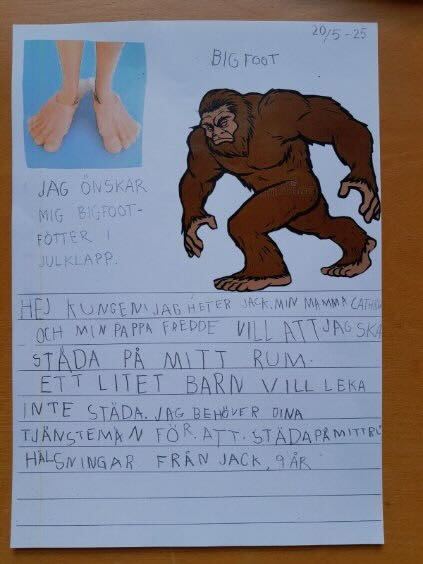 20/5-25
BIGFOOT
JAG ÖNSKAR
MIG BIGFOOT-
FÖTTER I
JULKLAPP.
HEJ KUNGEN! JAG HETER JACK. MIN MAMMA
OCH MIN PAPPA FREDDE VILL ATT JAG SKA
STÄDA PÅ MITT RUM.
ETT LITET BARN VILL LEKA
INTE STÄDA. JAG BEHÖVER DINA
TJÄNSTEMÄN FÖR. ATT. STÄDA PÅ MITT
HÄLSNINGAR FRÅN JACK, 9 ÅR